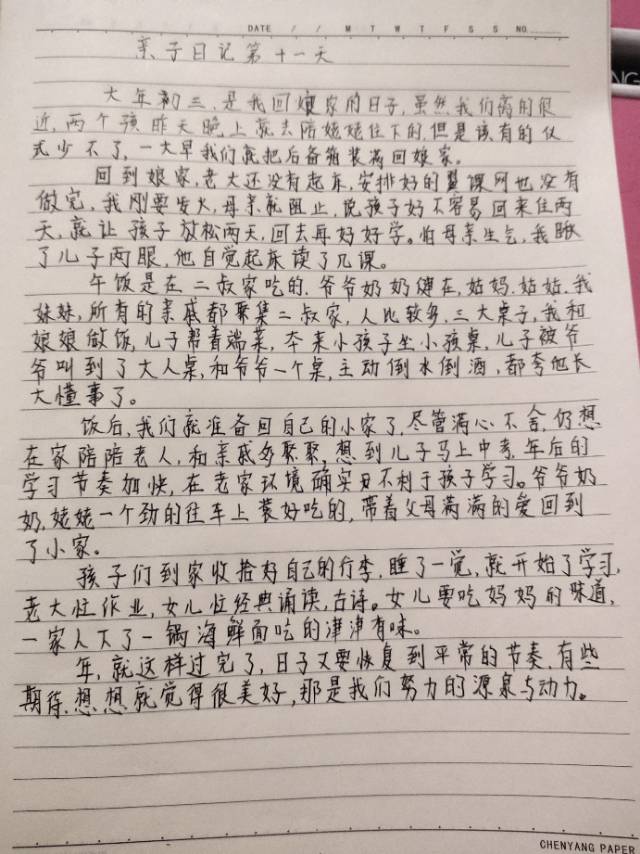 DATE / / M T W T F S S NO.
亲子日记第十一天
大年初三,是我回娘家的日子,虽然我们离的很
近,两个孩昨天晚上就去陪姥姥住下的,但是该有的仪
式少不了,一大早我们就把后备箱装满回娘家。
回到娘家,老大还没有起床,安排好的翼课网也没有
做完,我刚要发火,母亲就阻止,说孩子好不容易回来住两
天,就让孩子放松两天,回去再好好学。怕母亲生气,我瞅
了儿子两眼,他自觉起床读了几课。
午饭是在二叔家吃的.爷爷奶奶健在,姑妈.姑姑.我
妹妹,所有的亲戚都聚集二叔家,人比较多,三大桌子,我和
娘娘做饭,儿子帮着端菜,本来小孩子坐小孩桌,儿子被爷
爷叫到了大人桌,和爷爷一个桌,主动倒水倒酒,都夸他长
大懂事了。
饭后,我们就准备回自己的小家了,尽管满心不舍,仍想
在家陪陪老人,和亲戚多聚聚,想到儿子马上中考,年后的
学习节奏加快,在老家环境确实不利于孩子学习。爷爷奶
奶,姥姥一个劲的往车上装好吃的,带着父母满满的爱回到
了小家。
孩子们到家收拾好自己的行李,睡了一觉,就开始了学习,
老大忙作业,女儿忙经典诵读,古诗。女儿要吃妈妈的味道,
一家人下了一锅海鲜面吃的津津有味。
年,就这样过完了,日子又要恢复到平常的节奏,有些
期待.想想就觉得很美好,那是我们努力的源泉与动力。
CHENYANG PAPER